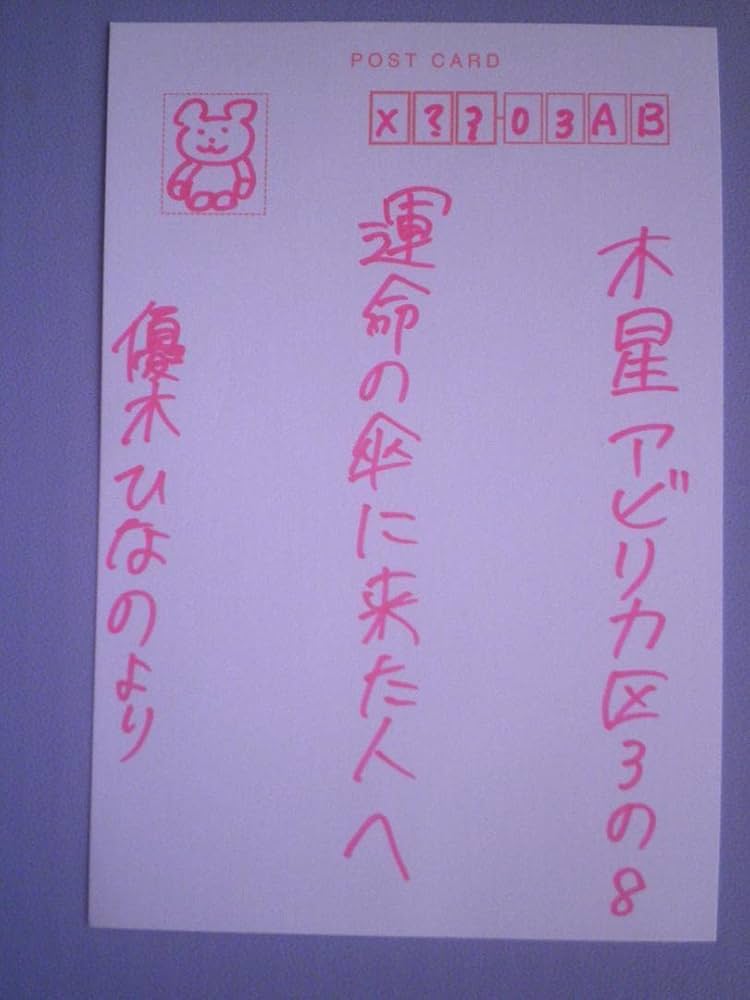 POST CARD
X??-03AB
木星アビリカ区3の8
運命の傘に来た人へ
優木ひなのより